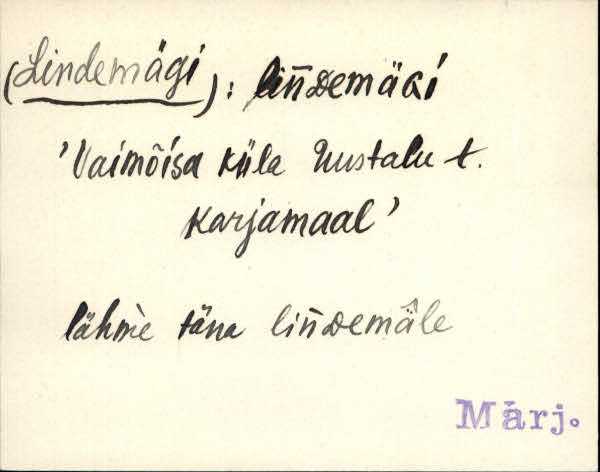 (Lindemägi): lin̄ᴅemäɢi
'Vaimõisa küla Uustalu t.
karjamaal'
lähm̀e täna lin̄ᴅemäl̀e
Märj.